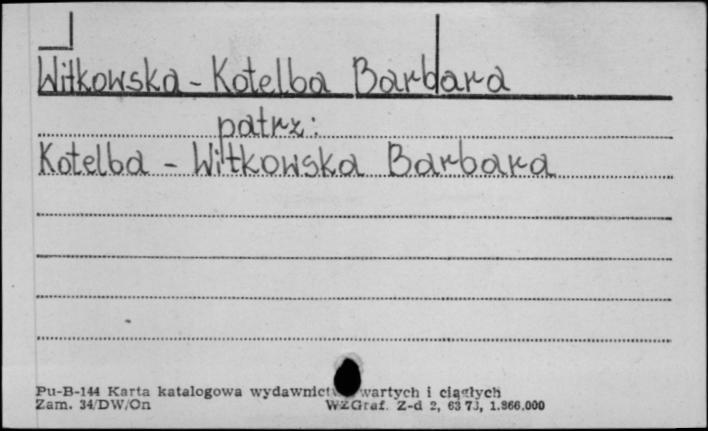 Witkowska - Kotelba Barbara
patrz:
Kotelba - Witkowska Barbara
Pu-B-144 Karta katalogowa wydawnictw zwartych i ciągłych
Zam. 34/DW/On WZGraf. Z-d 2, 63 73, 1.866.000